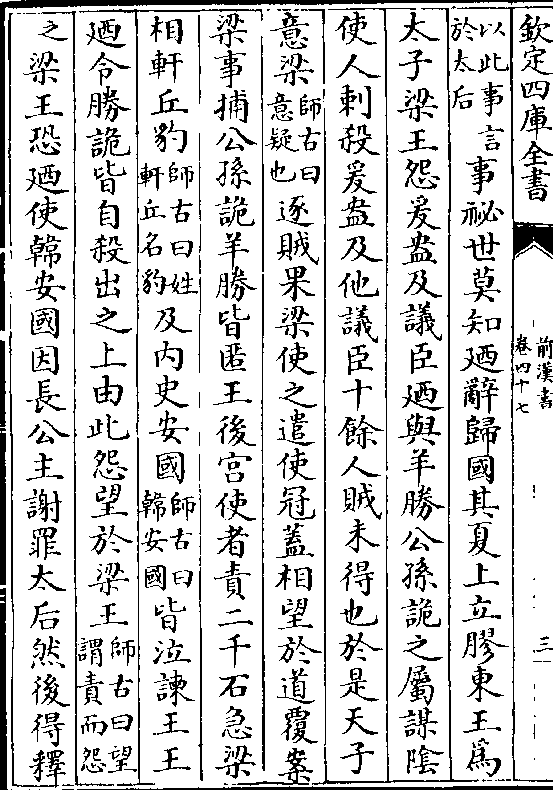 欽定四庫全書
前漢書
卷四十七
三
以此事言
於太后
事祕世莫知廼辭歸國其夏上立膠東王爲
太子梁王怨爰盎及議臣廼與羊勝公孫詭之屬謀陰
使人刺殺爰盎及他議臣十餘人賊未得也於是天子
意梁師古曰意疑也逐賊果梁使之遣使冠蓋相望於道覆案
梁事捕公孫詭羊勝皆匿王後宫使者責二千石急梁
相軒丘豹師古曰姓軒丘名豹及内史安國師古曰韓安國皆泣諫王王
廼令勝詭皆自殺出之上由此怨望於梁王師古曰望謂責而怨
之梁王恐廼使韓安國因長公主謝罪太后然後得釋